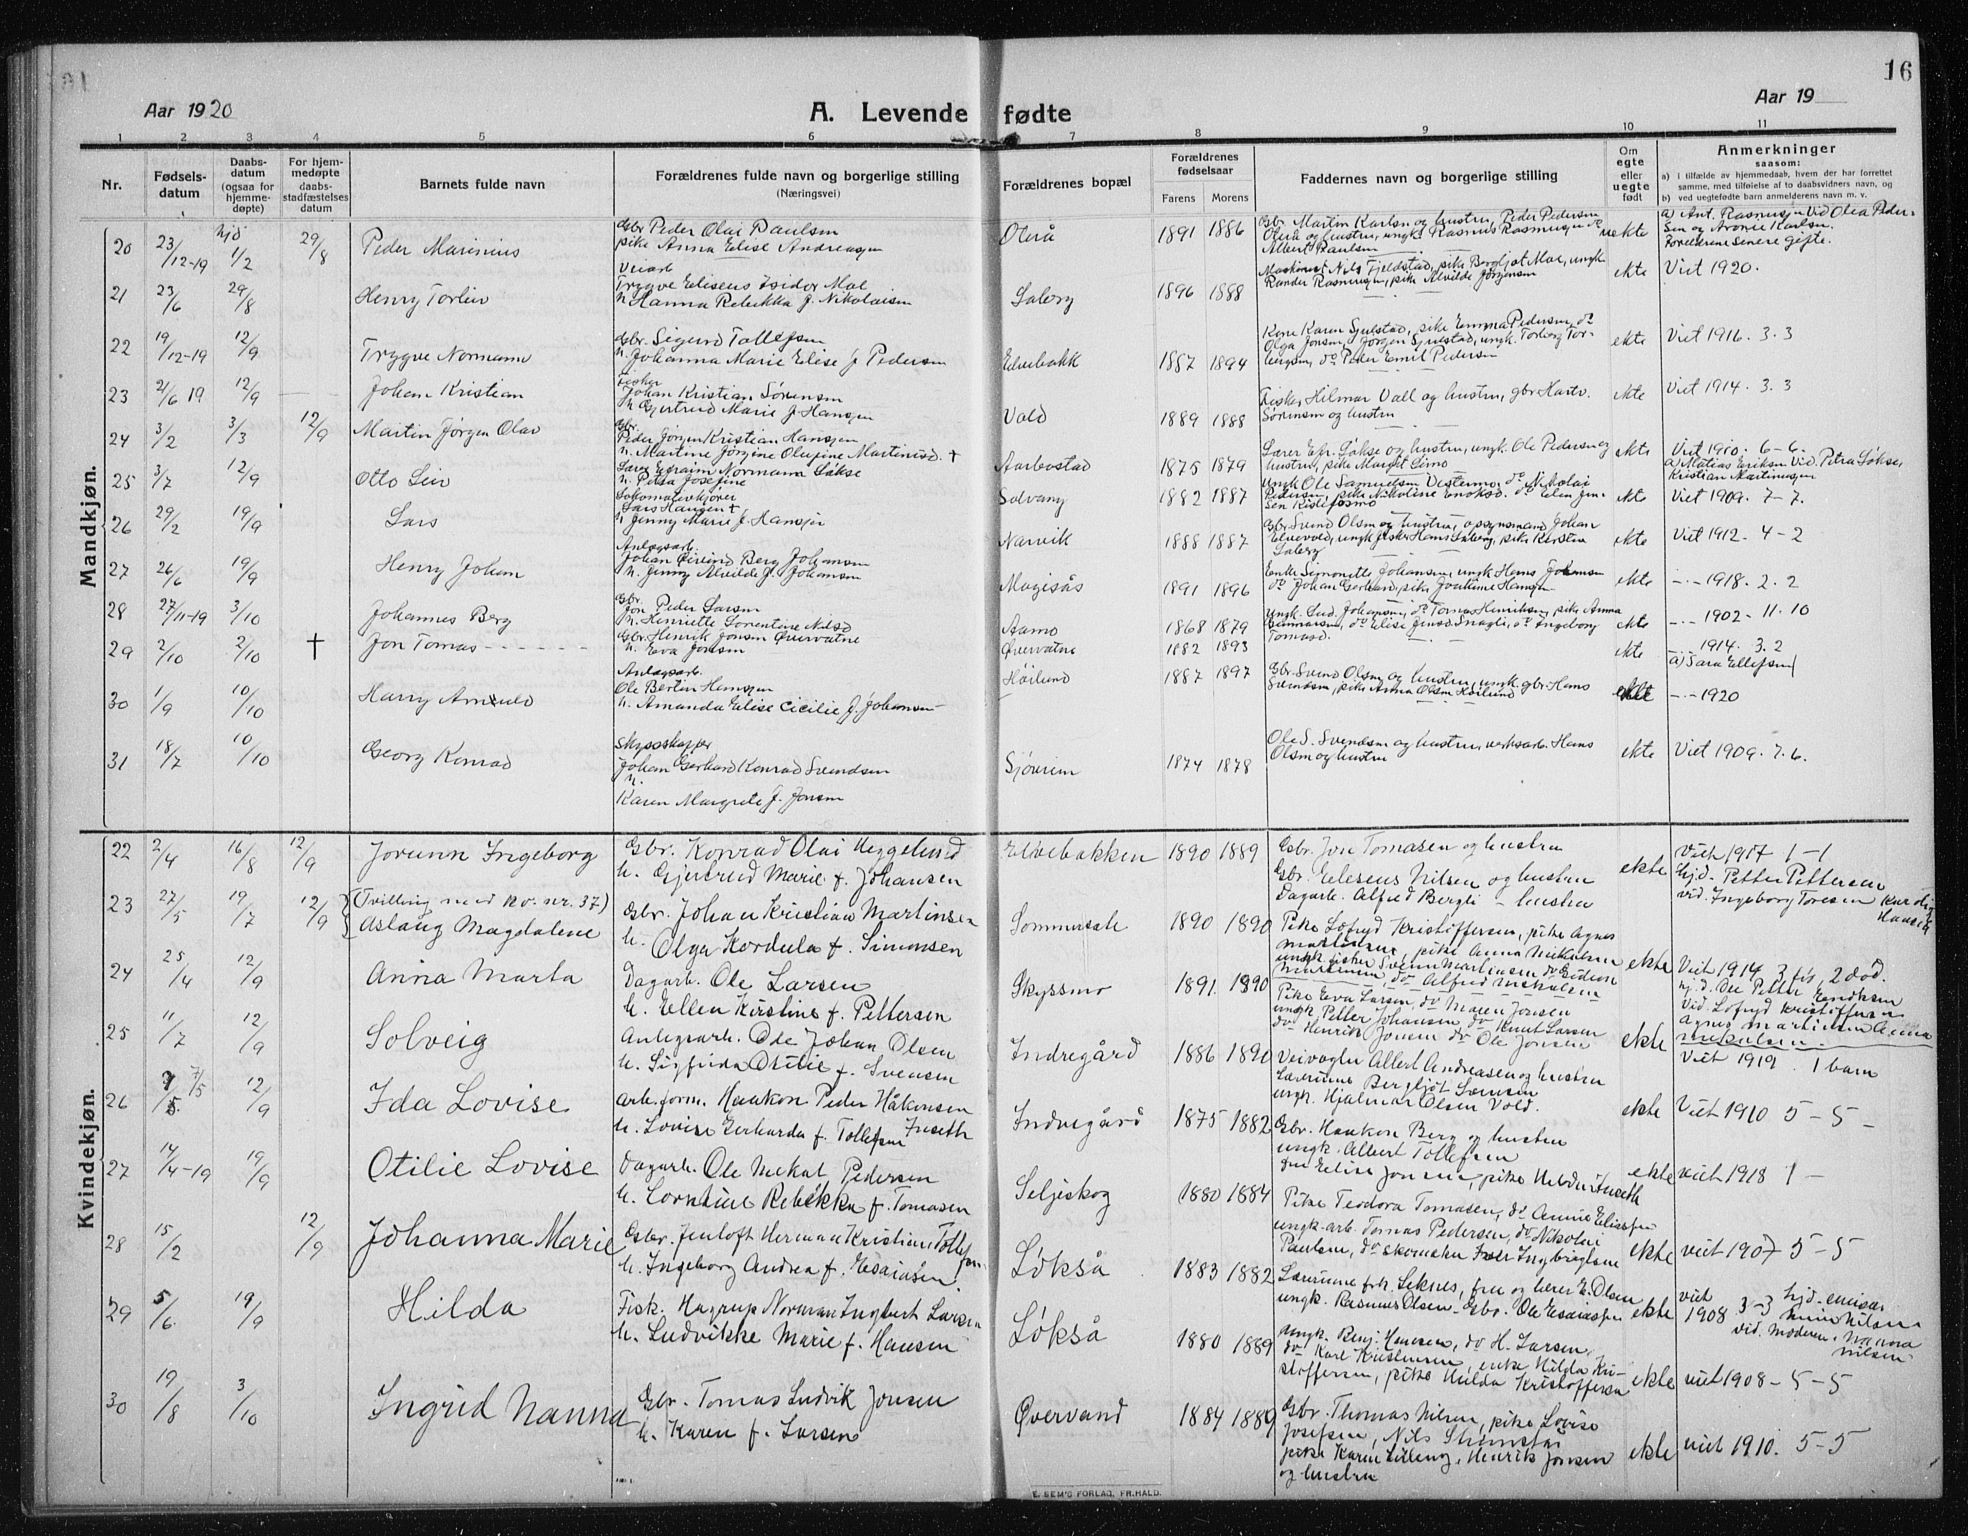 16
Aar 1920
A. Levende fødte
Aar 19
1 2 3 4 5 6 7 8 9 10 11
Nr.
Fødsels-
datum
Daabs-
datum
(ogsaa for
hjemme-
døpte)
For hjem-
medøpte
daabs-
stadfæstelses
datum
Barnets fulde navn
Forældrenes fulde navn og borgerlige stilling
(Næringsvei)
Forældrenes bopæl
Forældrenes
fødselsaar
Farens Morens
Faddernes navn og borgerlige stilling
Om
egte
eller
uegte
født
Anmerkninger
saasom:
a) I tilfælde av hjemmedaab, hvem der har forrettet
samme, med tilføielse af to daabsvidners navn, og
b) ved uegtefødte barn anmelderens navn m. v.
Mandkjøn.
20 23/12-19 hjd 1/2 29/8 Peder Marinius
Gbr Peder Olai Paulsen
pike Anna Elise Andreasen
1891 1886
Gbr. Martin Karlsen og hustru, Peder Pedersen
Albert Paulsen
a) Ant. Rasmussen Vid Olea Peder-
sen og Aronie Karlsen.
Forældrene senere gifte.
21 23/6 29/8 Henry Torleiv
Veiarb
Trygve Elisens Isidor Moe
h. Hanna Rebekka f. Nikolaisen
Saberg 1896 1888
Maskinist Nils Fjeldstad, pike Bergljot Moe, ungk
Rander Rasmussen, pike Alvilde Jørgensen
ekte Viet 1920.
22 19/12-19 12/9 Trygve Normann
Gbr. Sigurd Tollefsen
h. Johanna Marie Elise f. Pedersen
Elvebakk 1887 1894
Kone Karen Sjulstad, pike Emma Pedersen, do
Olga Jensen, Jørgen Sjulstad, ungk. Torberg Tor-
bergsen, do Peder Emil Pedersen
ekte Viet 1916. 3. 3
23 21/6 19 12/9 Johan Kristian
Fisker
Johan Kristian Sørensen
h Gjertrud Marie f. Hansen
Vold 1889 1888
Fisker Hilmar Vall og hustru, gbr Hartv.
Sørensen og hustru
ekte Viet 1914. 3. 3
24 3/2 3/3 12/9 Martin Jørgen Olav
Gbr.
Peder Jørgen Kristian Hansen
h. Martine Jørgine Olufine Martinsd. +
Aarbostad 1875 1879
Lærer Efr. Løkse og hustru, ungk Ole Pedersen og
hustru, pike Margit Simo
ekte Viet 1900. 6-6.
a) Matias Eriksen Vid. Petra Løkse,
Kristian Martinussen
25 3/7 12/9 Otto Leiv
Lærer Efraim Normann Løkse
h. Petra Josefine
Solvang 1882 1887
ungk Ole Samuelsen Vestermo, do Nikolai
Pedersen, pike Nikoline Enoksd. do Elen Jen-
sen Kistefossmo
ekte Viet 1909. 7-7.
26 29/2 19/9 Lars
Lokomotivkjører
Lars Haugen +
h Jenny Marie f. Hansen
Narvik 1888 1887
Gbr Svend Olsen og hustru, opsynsmand Johan
Elvevold, ungk fisker Hans Saberg, pike Karsten
Saberg
ekte Viet 1912. 4-2
27 26/6 19/9 Henry Johan
Anlegsarb
Johan Eivind Berg Johansen
h. Jenny Alvilde f. Johansen
Magisås 1891 1896
Enke Signorette Johansen, ungk Hans Johansen
do Johan Gerhard, pike Joakime Hansen
ekte -"- 1918. 2. 2
28 27/11-19 3/10 Johannes Berg
Gbr.
Jon Peder Larsen
h. Henriette Lorentine Nilsd
Aamo 1868 1879
ungk. Lud. Johansen, do Tomas Henriksen, pike Anna
Gunnarsen, do Elise Jensd. Snagli, do Ingeborg
Tomasd.
ekte -"- 1902 - 11. 10
29 2/10 2/10 † Jon Tomas
Gbr. Henrik Jensen Øvervatne
h. Eva Jensen
Øvervatne 1882 1893
ekte -"- 1914. 3. 2
a) Sara Ellefsen
30 1/9 10/10 Harry Arnuld
Anlegsarb.
Ole Bertin Hansen
h. Amanda Elise Cicilie f. Johansen
Høilund 1887 1897
Gbr. Svend Olsen og hustru, ungk. gbr Hans
Svendsen, pike Anna Olsen Høilund
ekte -"- 1920
31 18/7 10/10 Georg Konrad
Skysskaffer
Johan Gerhard Konrad Svendsen
h.
Karen Margrete f. Jensen
Sjøveien 1874 1878
Ole S. Svendsen og hustru, verksarb. Hans
Olsen og hustru
ekte Viet 1909. 7. 6.
Kvindekjøn.
22 2/4 16/8 12/9 Jorunn Ingeborg
Gbr. Konrad Olai Heggelund
h. Gjertrud Marie f. Johansen
Elvebakken 1890 1889
Gbr. Jon Tomasen og hustru
Gbr Eleseus Nilsen og hustru
Dagarb. Alfred Bergli - hustru
ekte Viet 1917 1-1
hjd. Petter Pettersen
vid. Ingeborg Toresen Karolig
Hansen
23 27/5 19/7 12/9 (Tvilling med no. nr. 37)
Aslaug Magdalene
Gbr. Johan Kristian Martinsen
h. Olga Kordula f. Simonsen
Sommersæte 1890 1890
Pike Lofryd Kristiffersen, pike Agnes
Martinsen, pike Anna Mikalsen
ungk. fisker Svenn Martinsen do Gideon
Martinsen, do Alfred Mikalsen
ekte Viet 1914 3 før, 2 død.
hj.d. Ole Petter Henriksen
Vid. Lofryd Kristiffersen
Agnes Martinsen Anna
Mikalsen.
24 25/4 12/9 Anna Marta
Dagarb. Ole Larsen
h. Ellen Kirstine f. Pettersen
Skyssmo 1891. 1890
Pike Eva Larsen, do Maren Jonsen
ungk. Petter Johansen, do Knut Larsen
do Henrik Jonsen do Ole Jonsen
ekte Viet 1919 1 barn
25 11/7 12/9 Solveig
Anlegsarb. Ole Johan Olsen
h. Sigfrida Otilie f. Svensen
Indregård 1886 1890
Veivogter Albert Andreasen og hustru
Lærerinne Bergljot Sørensen
ungk. Hjalmar Olsen Vold.
26 7/5 12/9 Ida Lovise
arb.form. Haakon Peder Håkonsen
Inseth
h. Lovise Gerharda f. Tollefsen
Indregård 1875 1882
Gbr. Haakon Berg og hustru
ungk. Albert Tollefsen
ekte Viet 1910 5-5-
27 14/4-19 19/9 Otilie Lovise
Dagarb. Ole Mekal Pedersen
h. Cornhine Rebekka f. Tomasen
Seljeskog 1880 1884
Pike Teodora Tomasen, do Anne Eliassen
ungk. arb. Tomas Pedersen, do Nikolai
Paulsen, do skomaker Iver Ingebrigtsen
ekte viet 1918 1 -
28 15/2 12/9 Johanna Marie
Gbr. Jenloft Herman Kristian Tollefsen
h. Ingeborg Andrea f. Esaiasen
Løkså 1883 1882
Lærerinne frk. Seknes, frue og lærer E. Olsen
ungk. Rasmus Olsen - Gbr. Ole Esaiassen
ekte viet 1907 5-5
29 5/6 19/9 Hilda
Fisk. Hagrup Norman Ingbert Larsen
h. Ludvikke Marie f. Hansen
Løkså 1880 1889
Ungk. Benj. Hansen, do H. Larsen,
do Karl Kristensen, enke Hilda Kri-
stoffersen, pike Hilda Kristoffersen
ekte viet
1908 3-3 hjd. emisær
Nilsen
vid. Moderen, Nanna
Nilsen
ekte viet 1908 - 5-5
30 19/8 3/10 Ingrid Nanna
Gbr. Tomas Ludvik Jonsen
h. Karen f. Larsen
Øvervand 1884 1889
Gbr. Thomas Nilsen, pike Lovise
Josefsen, Nils Strømstad
pike Karen Lilleng, Henrik Jonsen
og hustru
ekte viet 1910. 5-5
E. SEM'S FORLAG, FR.HALD.